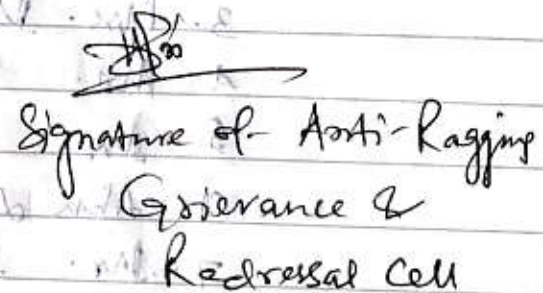 Signature of Anti-Ragging
Grievance &
Redressal Cell